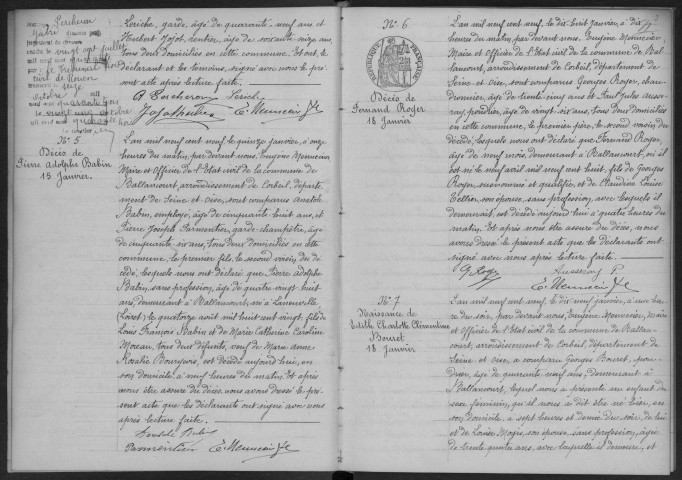 Leriche, garde, âgé de quarante neuf ans et
Heubert Jojot, rentier, âgé de soixante seize ans,
tous deux domiciliés en cette commune. Et ont, le
déclarant et les témoins, signé avec nous le pré-
sent acte après lecture faite.
Leriche
E. Meunier
N° 5
Décès de
Pierre Adolphe Babin
15 Janvier.
L'an mil neuf cent neuf, le quinze janvier, à onze
heures du matin, par devant nous, Eugène Monnecier
Maire et Officier de l'Etat civil de la commune de
Ballancourt, arrondissement de Corbeil, départe-
ment de Seine et Oise, sont comparus Anatole
Babin, employé, âgé de cinquante huit ans, et
Pierre Joseph Parmentier, garde-champêtre, âgé
de cinquante six ans, tous deux domiciliés en cette
commune, le premier fils, le second voisin du dé-
cédé, lesquels nous ont déclaré que Pierre Adolphe
Babin, sans profession, âgé de quatre vingt huit
ans, demeurant à Ballancourt, né à
(Loiret), le quatorze août mil huit cent vingt, fils de
Louis François Babin et de Marie Catherine Caroline
Moreau, tous deux défunts, veuf de Marie Anne
Rosalie Bourgeois, est décédé aujourd'hui, en
son domicile, à neuf heures du matin. Et après
nous être assuré du décès, nous avons dressé le pré-
sent acte que les déclarants ont signé avec nous
après lecture faite.
Parmentier
N° 6
RÉPUBLIQUE FRANÇAISE
Décès de
Fernand Roger
18 Janvier
L'an mil neuf cent neuf, le dix huit janvier, à dix
heures du matin, par devant nous, Eugène Monnecier
Maire et Officier de l'Etat civil de la commune de Bal-
lancourt, arrondissement de Corbeil, département de
Seine et Oise, sont comparus Georges Roger, chau-
dronnier, âgé de trente cinq ans et Paul Jules Aus-
say, poudrier, âgé de vingt-six ans, tous deux domiciliés
en cette commune, le premier père, le second voisin du
décédé, lesquels nous ont déclaré que Fernand Roger,
âgé de neuf mois, demeurant à Ballancourt, où il
est né le neuf avril mil neuf cent huit, fils de Georges
Roger, susnommé et qualifié, et de Claudine Louise
Tellier, son épouse, sans profession, avec lesquels il
demeurait, est décédé aujourd'hui à quatre heures du
matin. Et après nous être assuré du décès, nous
avons dressé le présent acte que les déclarants ont
signé avec nous après lecture faite.
G. Roger
N° 7
Naissance de
Edith Charlotte Clémentine
Bouret
18 Janvier
L'an mil neuf cent neuf, le dix neuf janvier, à une heu-
re du soir, par devant nous, Eugène Monnecier, Maire
et Officier de l'Etat civil de la commune de Ballan-
court, arrondissement de Corbeil, département de
Seine et Oise, a comparu Georges Bouret, pou-
drier, âgé de quarante neuf ans, demeurant à
Ballancourt, lequel nous a présenté un enfant du
sexe féminin, qu'il nous a dit être né hier, en
son domicile, à sept heures et demie du soir, de lui
et de Louise son épouse, sans profession, âgée
de trente quatre ans, avec laquelle il demeure, et